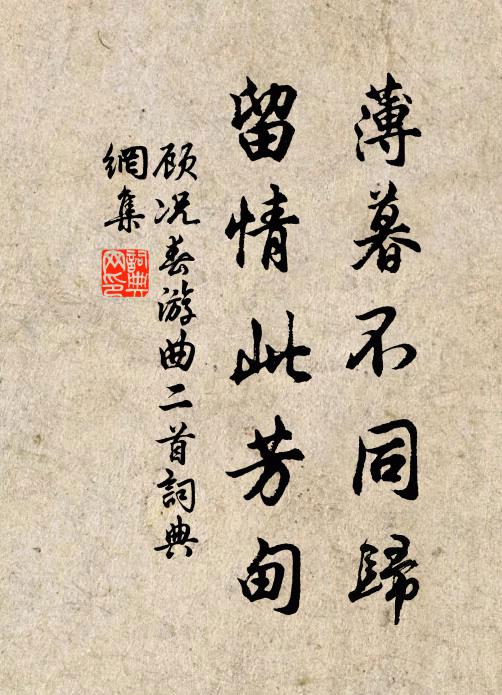 薄暮不同歸
留情此芳甸
顾况春游曲二首詞典
網集
詞典
网印